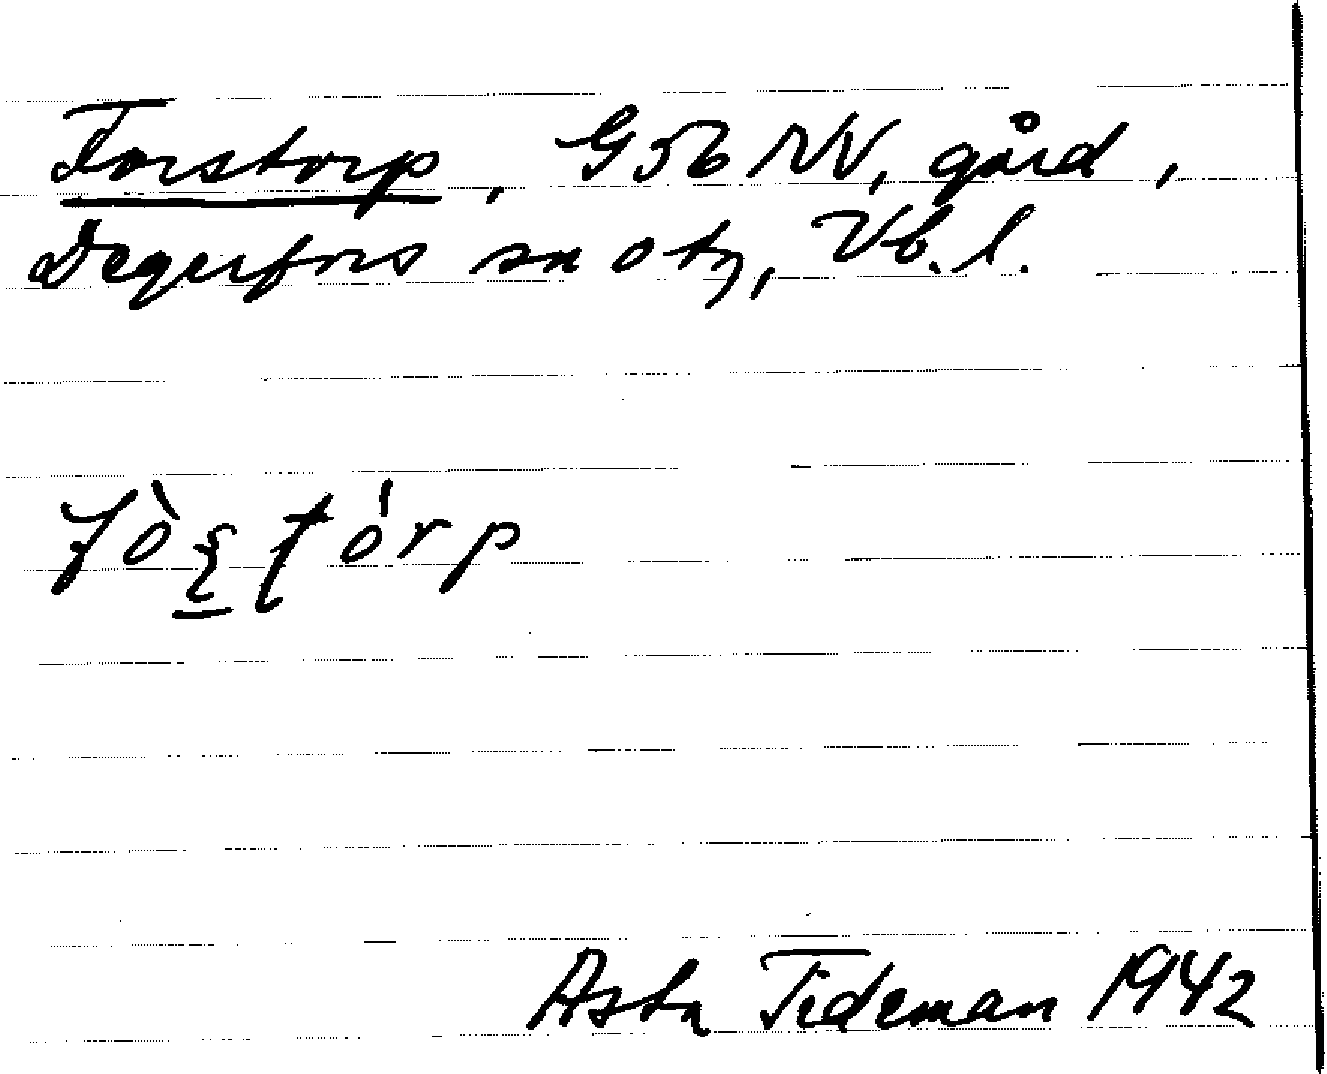 Forstorp, G56 NV, gård,
Degerfors sn o tg, Vb. l.
fòʂʈórp
Asta Tideman 1942